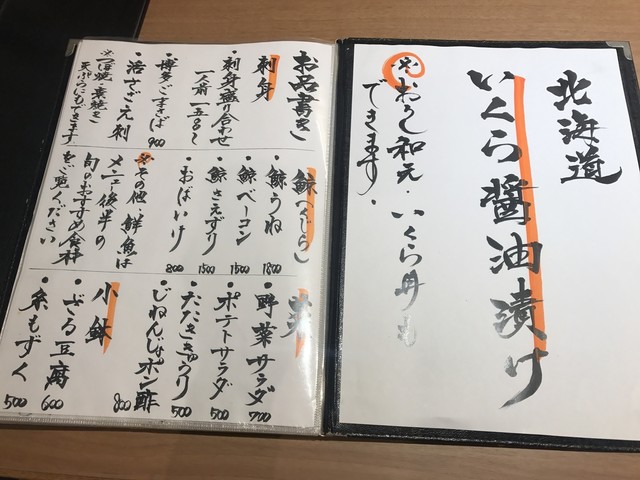 北海道
いくら醤油漬け
※おろし和え・いくら丼も
できます。
お品書き
刺身
・刺身盛り合わせ
一人前 一五〇〇〜
・博多ごまさば 900
・活さざえ刺
※つぼ焼・素焼き
天ぷらにもできます
鯨(くじら)
・鯨うね 1800
・鯨ベーコン 1500
・鯨さえずり 1500
・おばいけ 800
※その他、鮮魚は
メニュー後半の
旬のおすすめ食材
をご覧ください
・野菜サラダ 700
・ポテトサラダ 500
・たたききゅうり 500
・じねんじょポン酢 800
小鉢
・ざる豆腐 600
・糸もずく 500